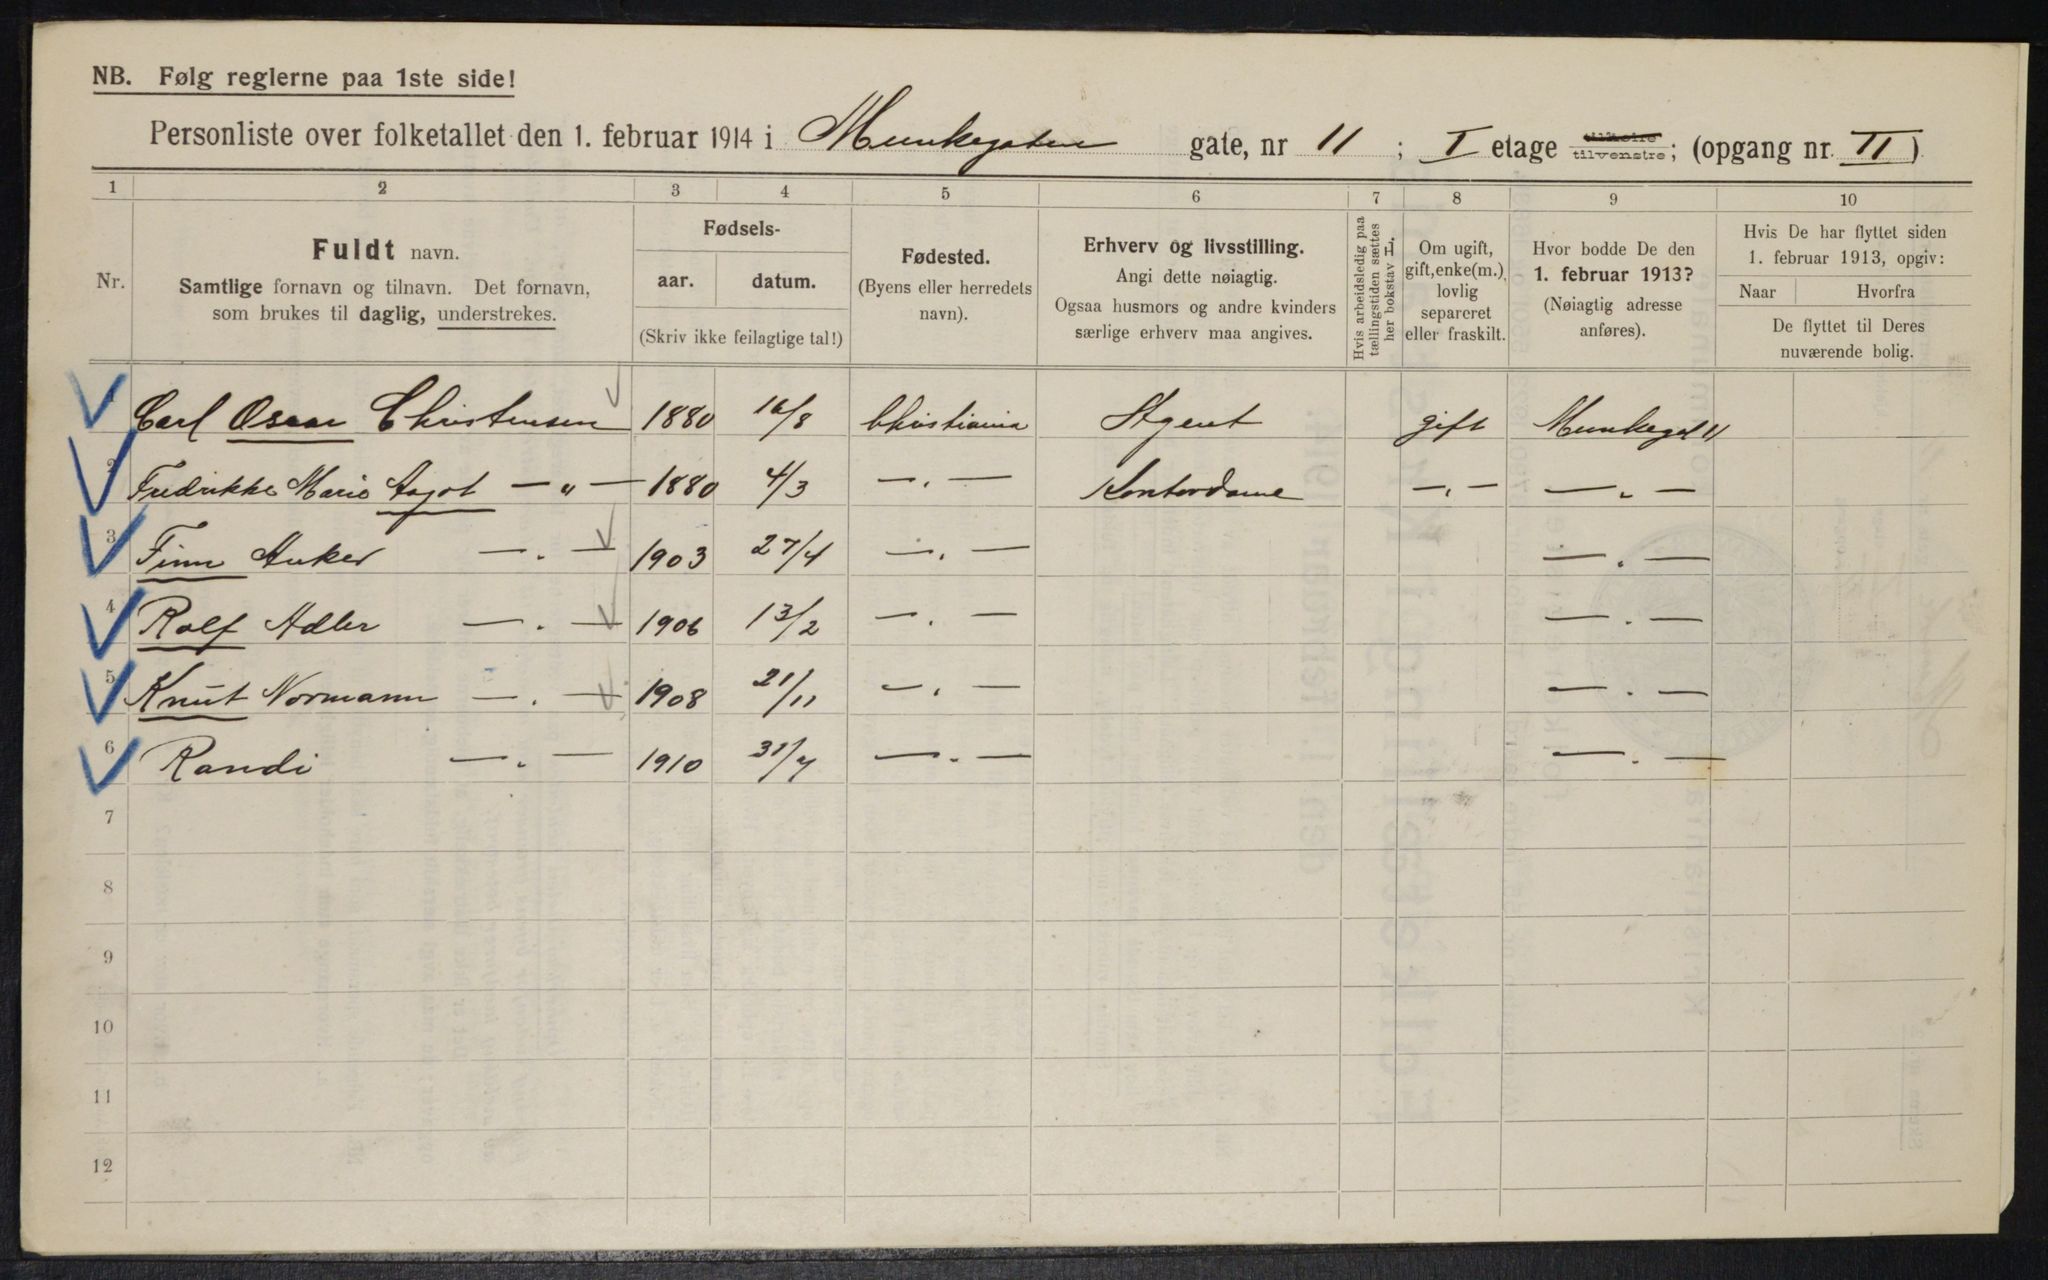 NB. Følg reglerne paa 1ste side!
Personliste over folketallet den 1. februar 1914 i Munkegaten gate, nr 11 ; I etage tilhøire tilvenstre; (opgang nr. II)
1 2 3 4 5 6 7 8 9 10
Nr.
Fuldt navn.
Samtlige fornavn og tilnavn. Det fornavn,
som brukes til daglig, understrekes.
Fødsels-
aar. datum.
(Skriv ikke feilagtige tal!)
Fødested.
(Byens eller herredets
navn).
Erhverv og livsstilling.
Angi dette nøiagtig.
Ogsaa husmors og andre kvinders
særlige erhverv maa angives.
Hvis arbeidsledig paa
tællingstiden sættes
her bokstav L.
Om ugift,
gift, enke(m.),
lovlig
separeret
eller fraskilt.
Hvor bodde De den
1. februar 1913?
(Nøiagtig adresse
anføres).
Hvis De har flyttet siden
1. februar 1913, opgiv:
Naar Hvorfra
De flyttet til Deres
nuværende bolig.
1 Carl Oscar Christensen 1880 16/8 Christiania Agent gift Munkegat 11
2 Fredrikke Marie Aagot — „ — 1880 4/3 — „ — Kontordame — „ — — „ —
3 Finn Anker — „ — 1903 27/4 — „ — — „ —
4 Rolf Adler — „ — 1906 13/2 — „ — — „ —
5 Knut Normann — „ — 1908 21/11 — „ — — „ —
6 Randi — „ — 1910 31/7 — „ — — „ —
7
8
9
10
11
12